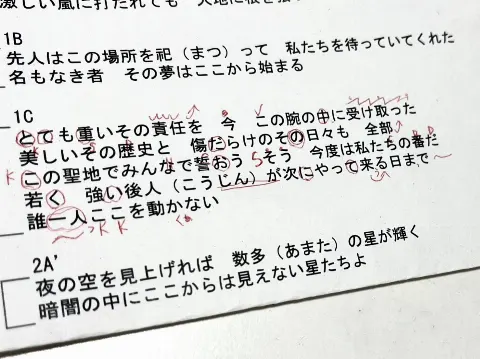 激しい嵐に打たれても 大地に根を
1B
先人はこの場所を祀(まつ)って 私たちを待っていてくれた
名もなき者 その夢はここから始まる
1C
とても重いその責任を 今 この腕の中に受け取った
美しいその歴史と 傷だらけのその日々も 全部
この聖地でみんなで誓おう そう 今度は私たちの番だ
若く 強い後人(こうじん)が次にやって来る日まで
誰一人ここを動かない
2A'
夜の空を見上げれば 数多(あまた)の星が輝く
暗闇の中にここからは見えない星たちよ